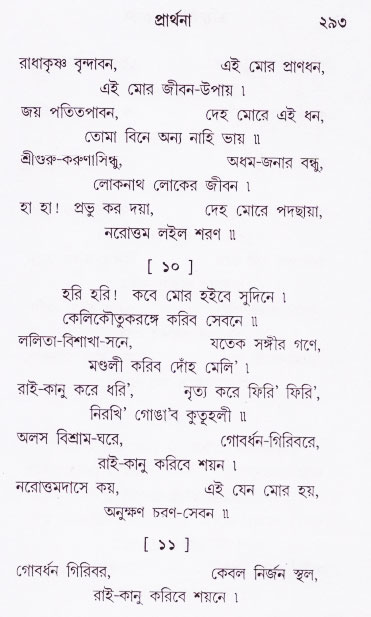 প্রার্থনা ২৯৩
রাধাকৃষ্ণ বৃন্দাবন, এই মোর প্রাণধন,
এই মোর জীবন-উপায়।
জয় পতিতপাবন, দেহ মোরে এই ধন,
তোমা বিনে অন্য নাহি ভায়॥
শ্রীগুরু-করুণাসিন্ধু, অধম-জনার বন্ধু,
লোকনাথ লোকের জীবন।
হা হা! প্রভু কর দয়া, দেহ মোরে পদছায়া,
নরোত্তম লইল শরণ॥
[ ১০ ]
হরি হরি! কবে মোর হইবে সুদিনে।
কেলিকৌতুকরঙ্গে করিব সেবনে॥
ললিতা-বিশাখা-সনে, যতেক সঙ্গীর গণে,
মণ্ডলী করিব দোঁহ মেলি’।
রাই-কানু করে ধরি’, নৃত্য করে ফিরি’ ফিরি’,
নিরখি’ গোঙা’ব কুতূহলী॥
অলস বিশ্রাম-ঘরে, গোবর্ধন-গিরিবরে,
রাই-কানু করিবে শয়ন।
নরোত্তমদাসে কয়, এই যেন মোর হয়,
অনুক্ষণ চরণ-সেবন॥
[ ১১ ]
গোবর্ধন গিরিবর, কেবল নির্জন স্থল,
রাই-কানু করিবে শয়নে।